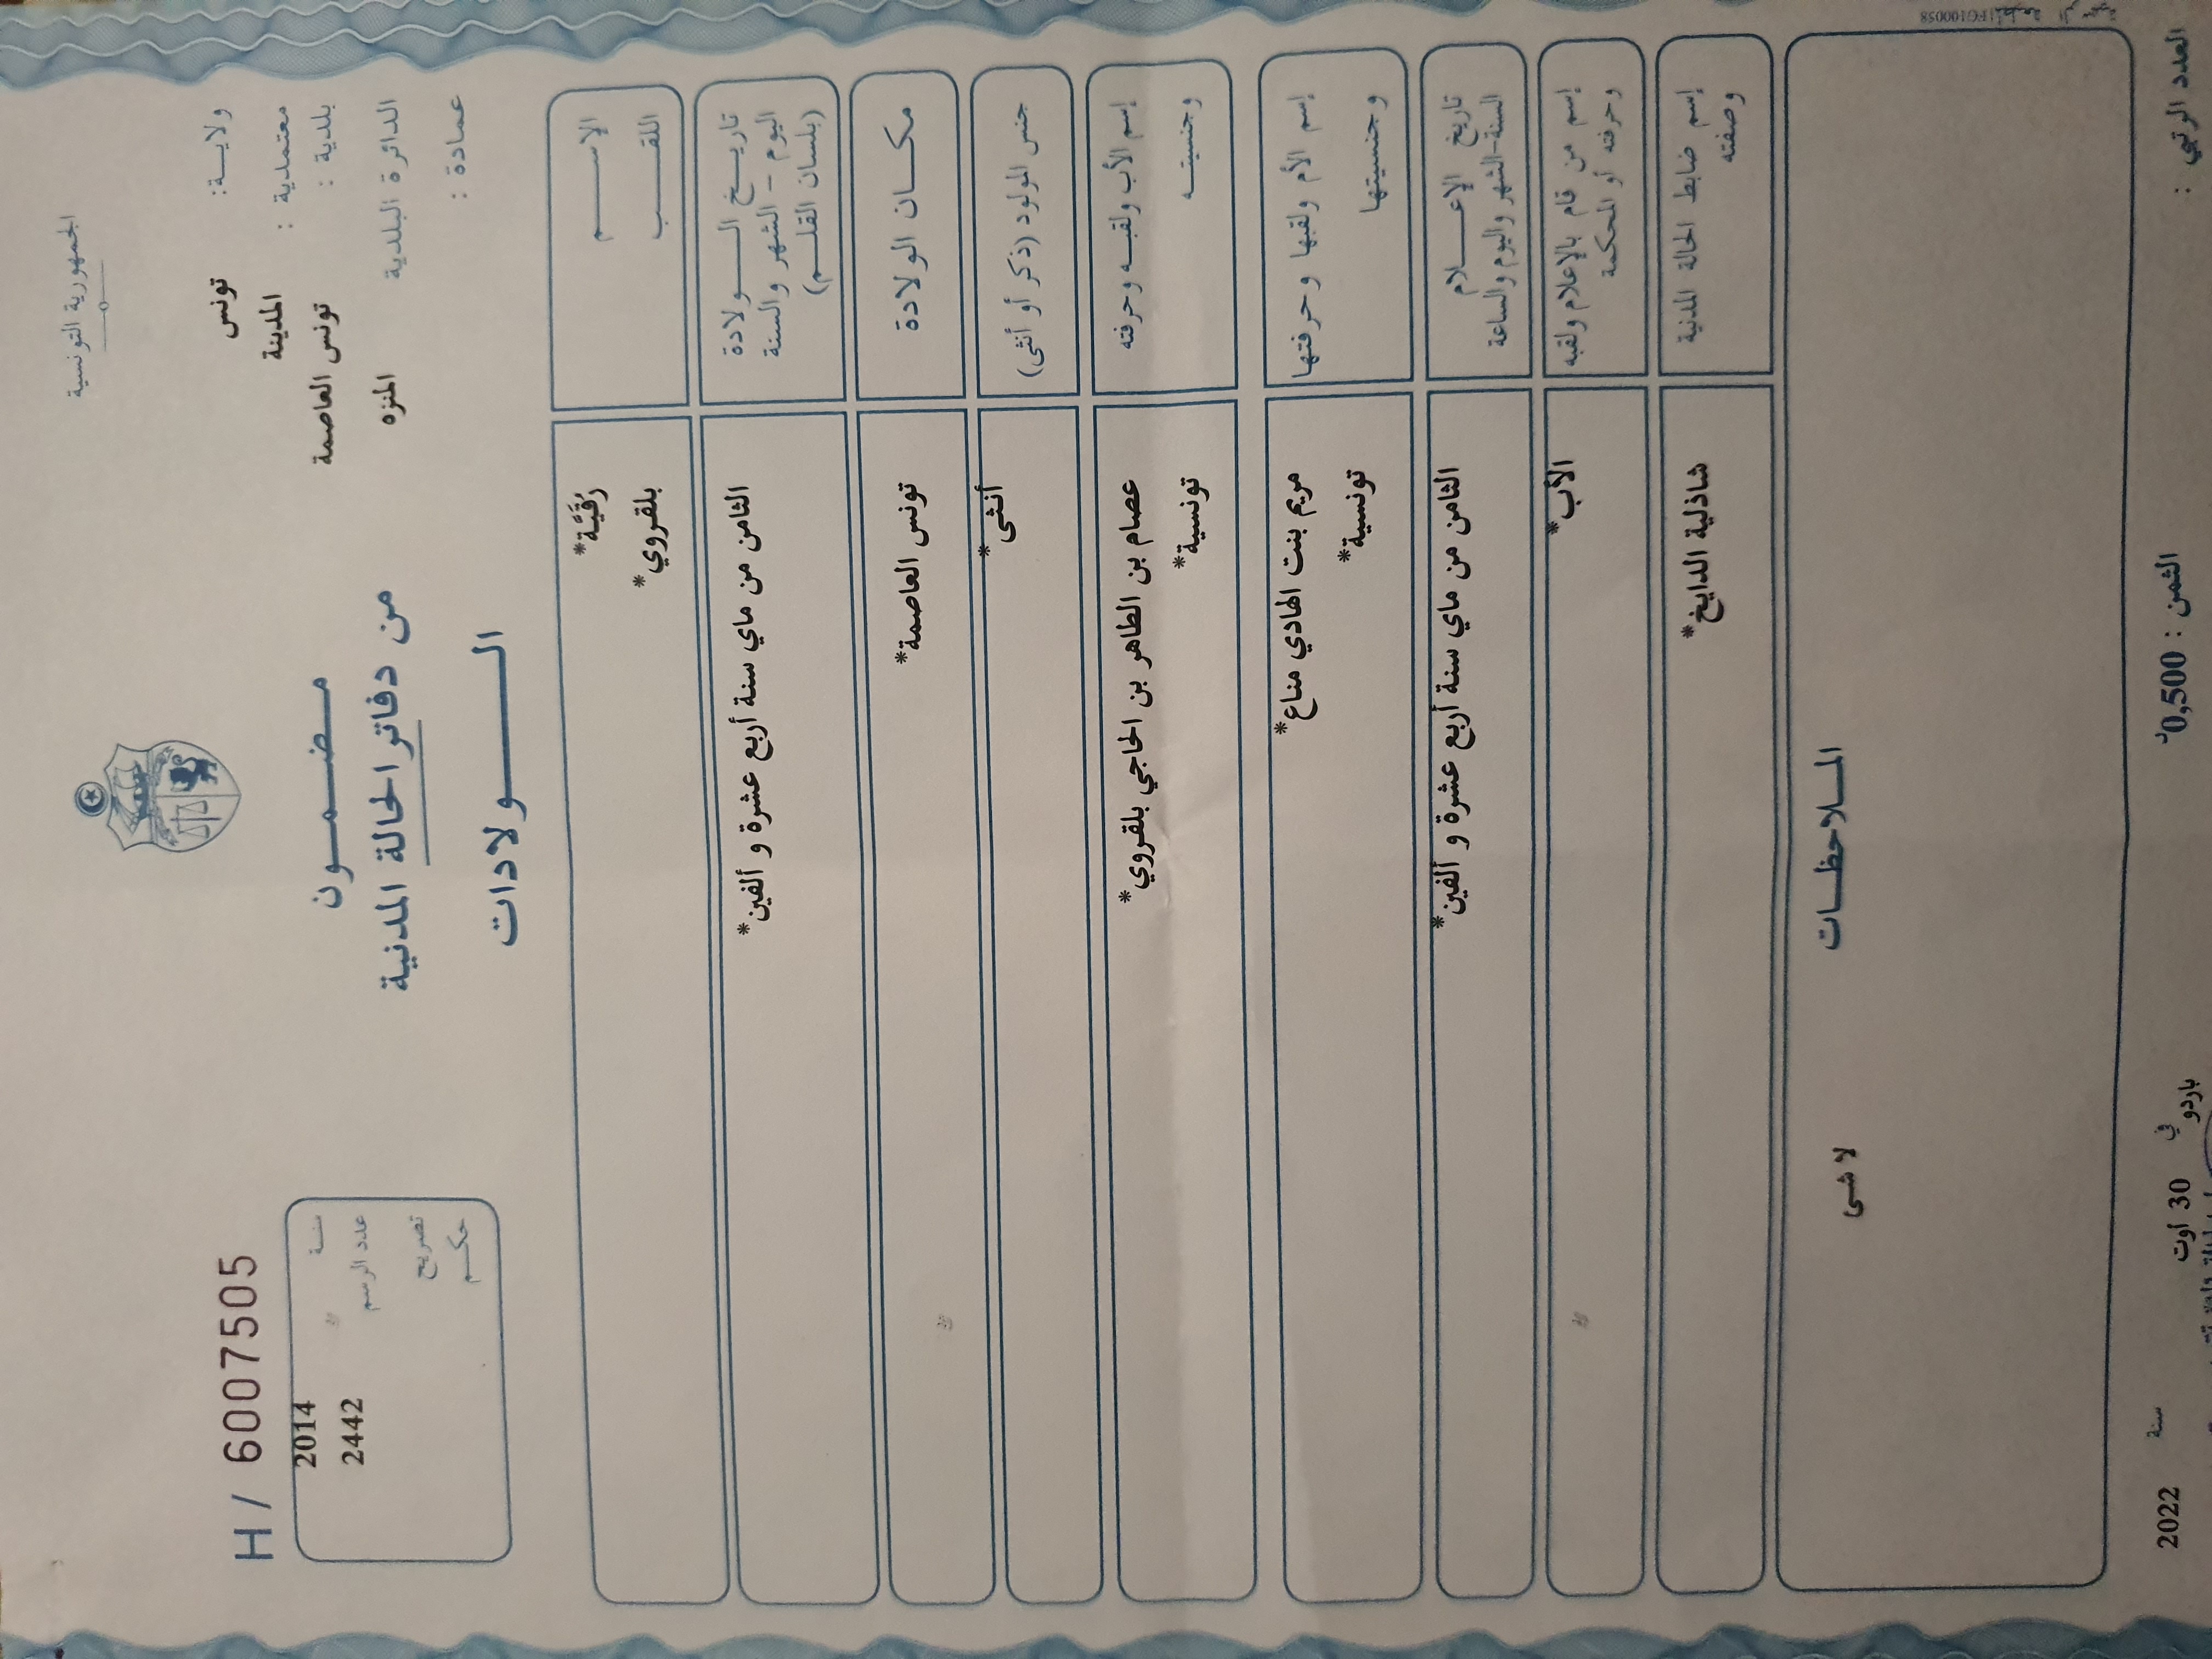 الجمهورية التونسية
ولايـة: تونس
معتمدية : المدينة
بلدية : تونس العاصمة
الدائرة البلدية المنزه
عمادة :
مـضـمـون
من دفاتر الحالة المدنية
الـولادات
H / 6007505
سنـة 2014
عدد الرسم 2442
تصريح
حكـم
الإســم رُقَيَّة*
اللقـب بلقروي*
تاريـخ الــولادة الثامن من ماي سنة أربع عشرة و ألفين*
اليوم - الشهر والسنة
(بلسان القلـم)
مكـان الولادة تونس العاصمة*
جنس المولود (ذكر أو أنثى) أنثى*
إسم الأب ولقبـه وحرفته عصام بن الطاهر بن الحاجي بلقروي*
وجنسيتـه تونسية*
إسم الأم ولقبها وحرفتها مريم بنت الهادي مناع*
وجنسيتها تونسية*
تاريخ الإعـلام الثامن من ماي سنة أربع عشرة و ألفين*
السنة-الشهر واليوم والساعة
إسم من قام بالإعلام ولقبه الأب*
وحرفته أو المحكمة
إسم ضابط الحالة المدنية شاذلية الدايخ*
وصفته
المـلاحظـات
لا شى
المطبعة الرسمية
IFG100058
العدد الرتبي :
الثمن : 0,500د
باردو في 30 أوت سنة 2022